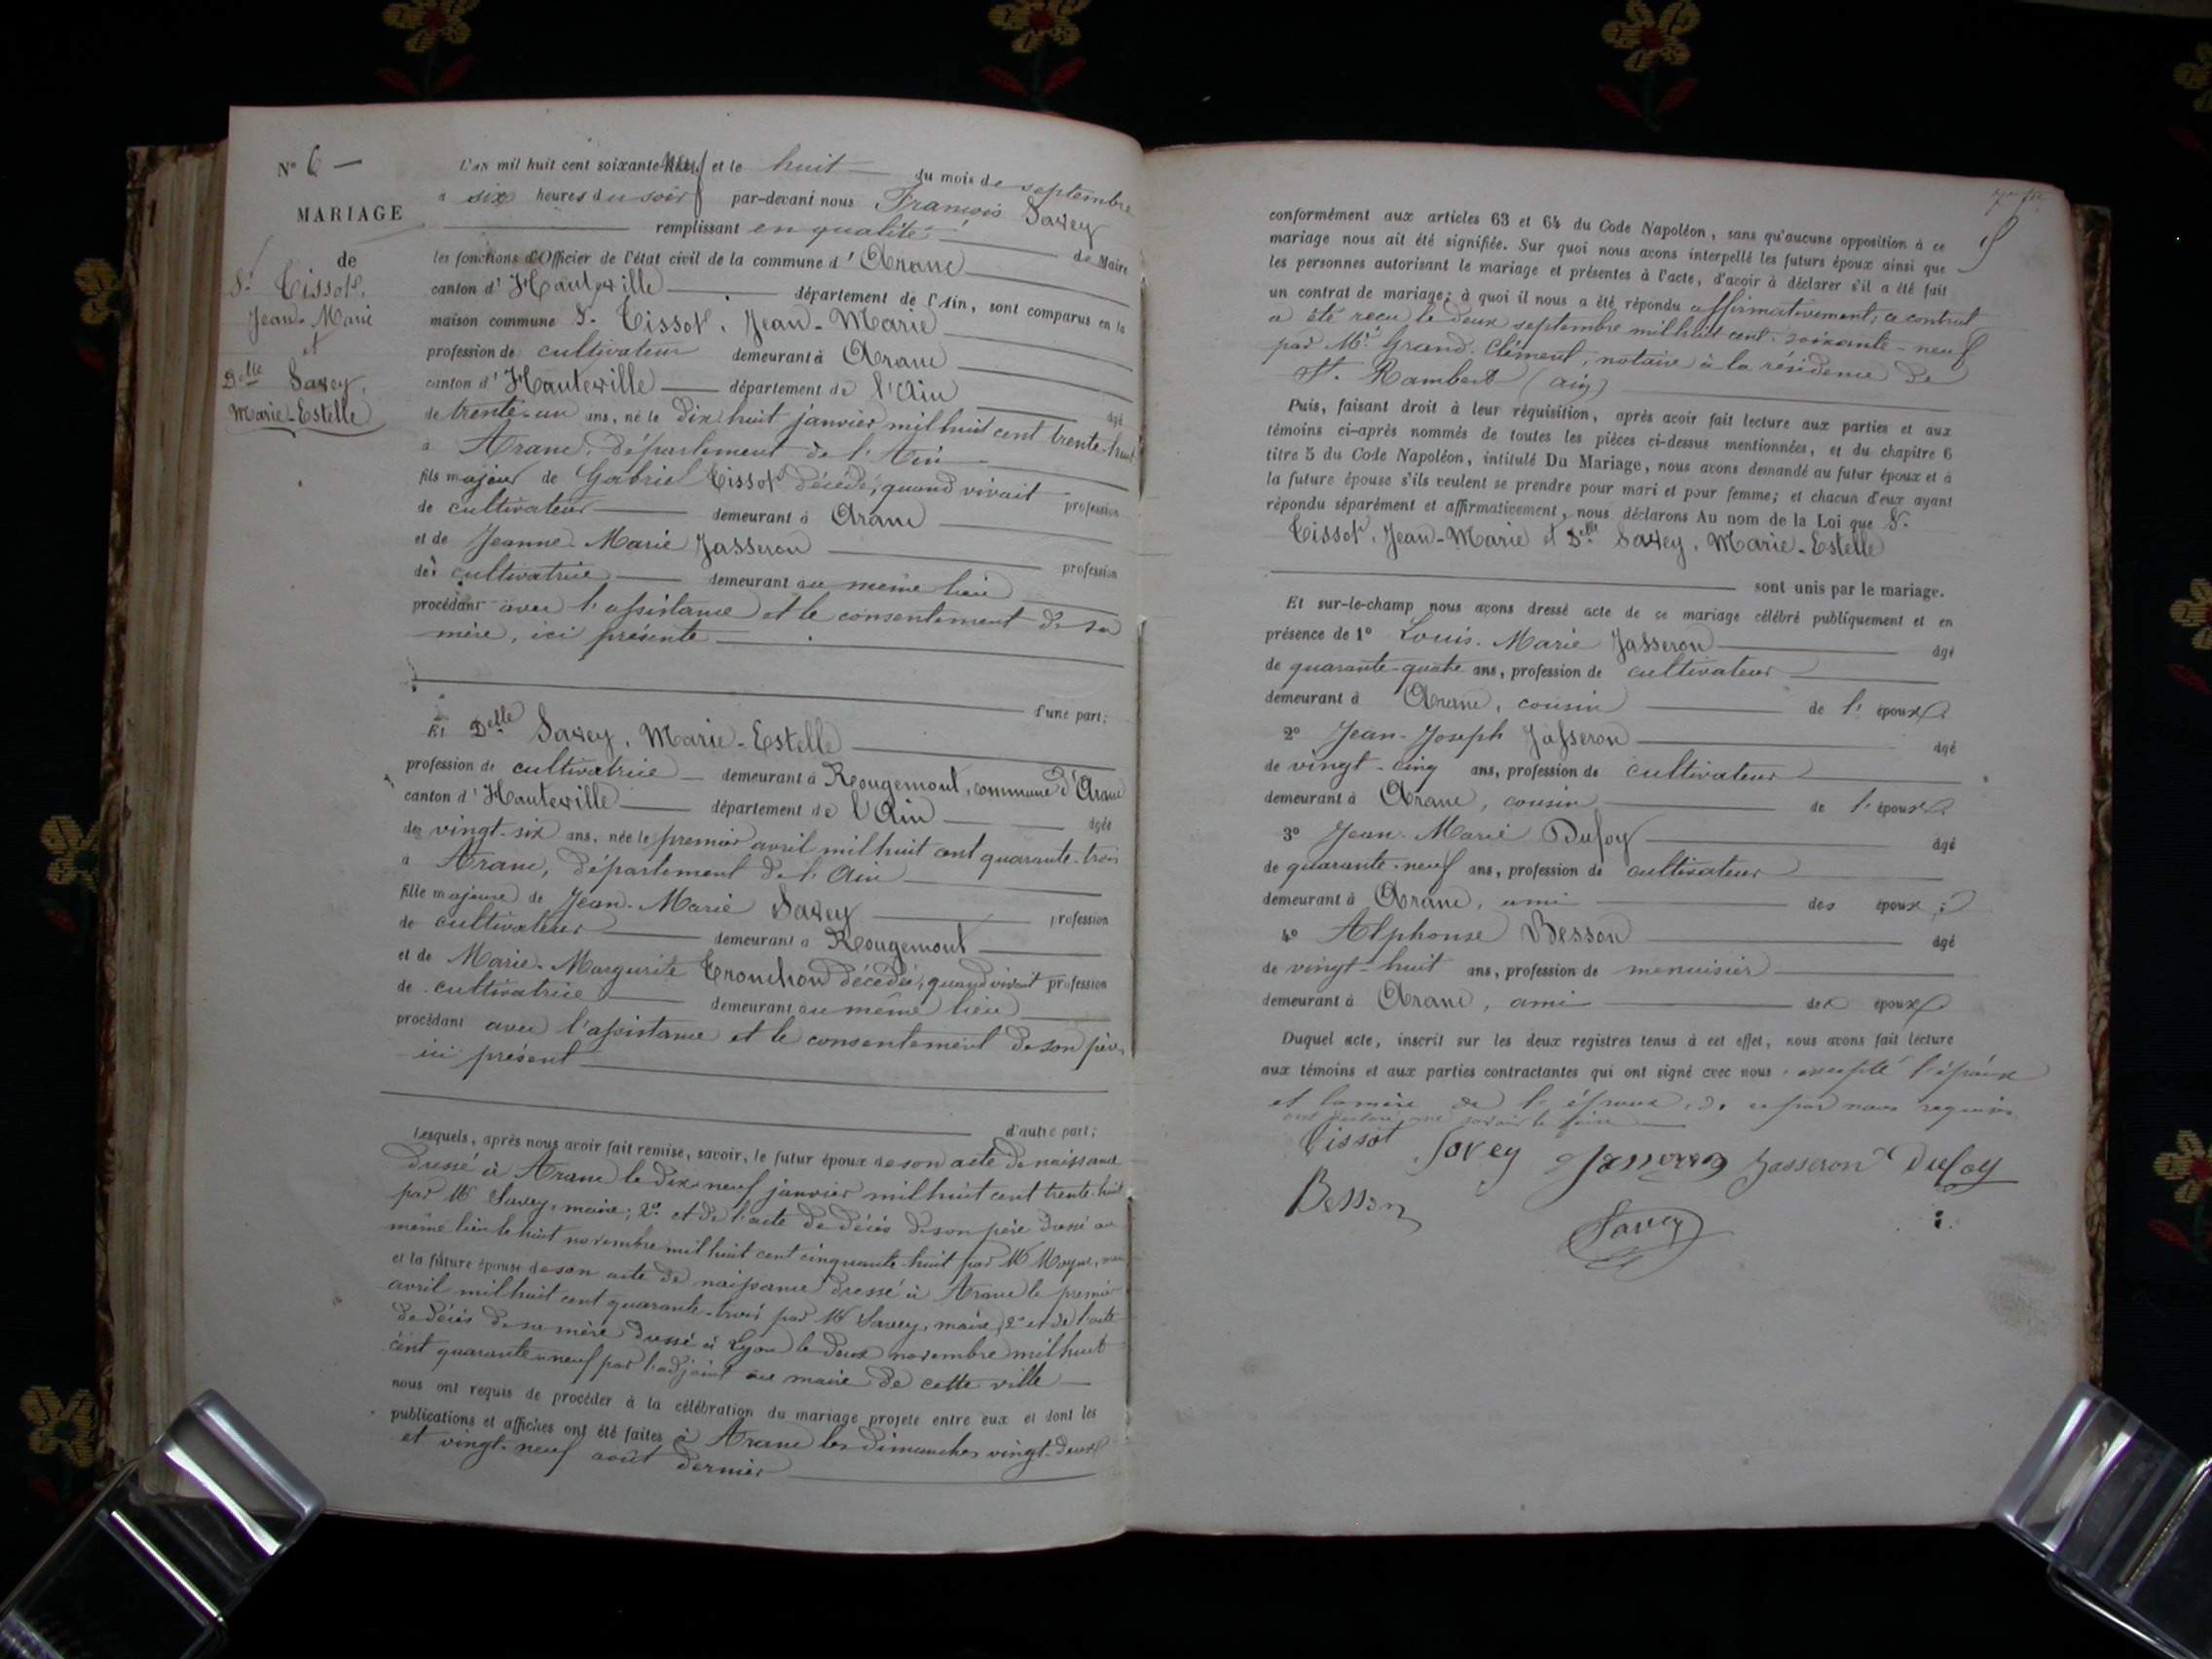 N° 6 —
MARIAGE
de
Sr. Tissot,
Jean-Marie
et
Delle Savey,
Marie-Estelle
L'an mil huit cent soixante-neuf et le huit du mois de septembre
à six heures du soir par-devant nous François Savey
remplissant en qualité de Maire
les fonctions d'Officier de l'état civil de la commune d'Aranc
canton d'Hauteville département de l'Ain, sont comparus en la
maison commune Sr. Tissot, Jean-Marie
profession de cultivateur demeurant à Aranc
canton d'Hauteville département de l'Ain
âgé
de trente-un ans, né le dix-huit janvier mil huit cent trente-huit
à Aranc, département de l'Ain
fils majeur de Gabriel Tissot décédé, quand vivait profession
de cultivateur demeurant à Aranc
et de Jeanne-Marie Jasseron profession
de cultivatrice demeurant au même lieu
procédant avec l'assistance et le consentement de sa
mère, ici présente
d'une part;
Et Delle Savey, Marie-Estelle
profession de cultivatrice demeurant à Rougemont, commune d'Aranc
canton d'Hauteville département de l'Ain âgée
de vingt-six ans, née le premier avril mil huit cent quarante-trois
à Aranc, département de l'Ain
fille majeure de Jean-Marie Savey profession
de cultivateur demeurant à Rougemont
et de Marie-Margurite Tronchon décédée, quand vivait profession
de cultivatrice demeurant au même lieu
procédant avec l'assistance et le consentement de son père,
ici présent
d'autre part;
Lesquels, après nous avoir fait remise, savoir, le futur époux de son acte de naissance
dressé à Aranc le dix-neuf janvier mil huit cent trente-huit
par Mr Savey, maire; 2° et de l'acte de décès de son père dressé au
même lieu le huit novembre mil huit cent cinquante-huit par Mr
et la future épouse de son acte de naissance dressé à Aranc le premier
avril mil huit cent quarante-trois par Mr Savey, maire, 2° et de l'acte
de décès de sa mère dressé à Lyon le deux novembre mil huit
cent quarante-neuf par l'adjoint au maire de cette ville —
nous ont requis de procéder à la célébration du mariage projeté entre eux et dont les
publications et affiches ont été faites à Aranc les dimanches vingt-deux
et vingt-neuf août dernier
conformément aux articles 63 et 64 du Code Napoléon, sans qu'aucune opposition à ce
mariage nous ait été signifiée. Sur quoi nous avons interpellé les futurs époux ainsi que
les personnes autorisant le mariage et présentes à l'acte, d'avoir à déclarer s'il a été fait
un contrat de mariage; à quoi il nous a été répondu affirmativement; ce contrat
a été reçu le deux septembre mil huit cent soixante-neuf
par Me Grand-Clément, notaire à la résidence de
St. Rambert (Ain)
Puis, faisant droit à leur réquisition, après avoir fait lecture aux parties et aux
témoins ci-après nommés de toutes les pièces ci-dessus mentionnées, et du chapitre 6
titre 5 du Code Napoléon, intitulé Du Mariage, nous avons demandé au futur époux et à
la future épouse s'ils veulent se prendre pour mari et pour femme; et chacun d'eux ayant
répondu séparément et affirmativement, nous déclarons Au nom de la Loi que Sr.
Tissot, Jean-Marie et Delle Savey, Marie-Estelle
sont unis par le mariage.
Et sur-le-champ nous avons dressé acte de ce mariage célébré publiquement et en
présence de 1° Louis-Marie Jasseron âgé
de quarante-quatre ans, profession de cultivateur
demeurant à Aranc, cousin de l'époux
2° Jean-Joseph Jasseron âgé
de vingt-cinq ans, profession de cultivateur
demeurant à Aranc, cousin de l'époux
3° Jean-Marie Dufoy âgé
de quarante-neuf ans, profession de cultivateur
demeurant à Aranc, ami des époux;
4° Alphonse Besson âgé
de vingt-huit ans, profession de menuisier
demeurant à Aranc, ami des époux
Duquel acte, inscrit sur les deux registres tenus à cet effet, nous avons fait lecture
aux témoins et aux parties contractantes qui ont signé avec nous, excepté l'épouse
et la mère de l'époux, de ce par nous requises
ont déclaré ne savoir le faire
Tissot Savey Jasseron Jasseron Dufoy
Besson
Savey